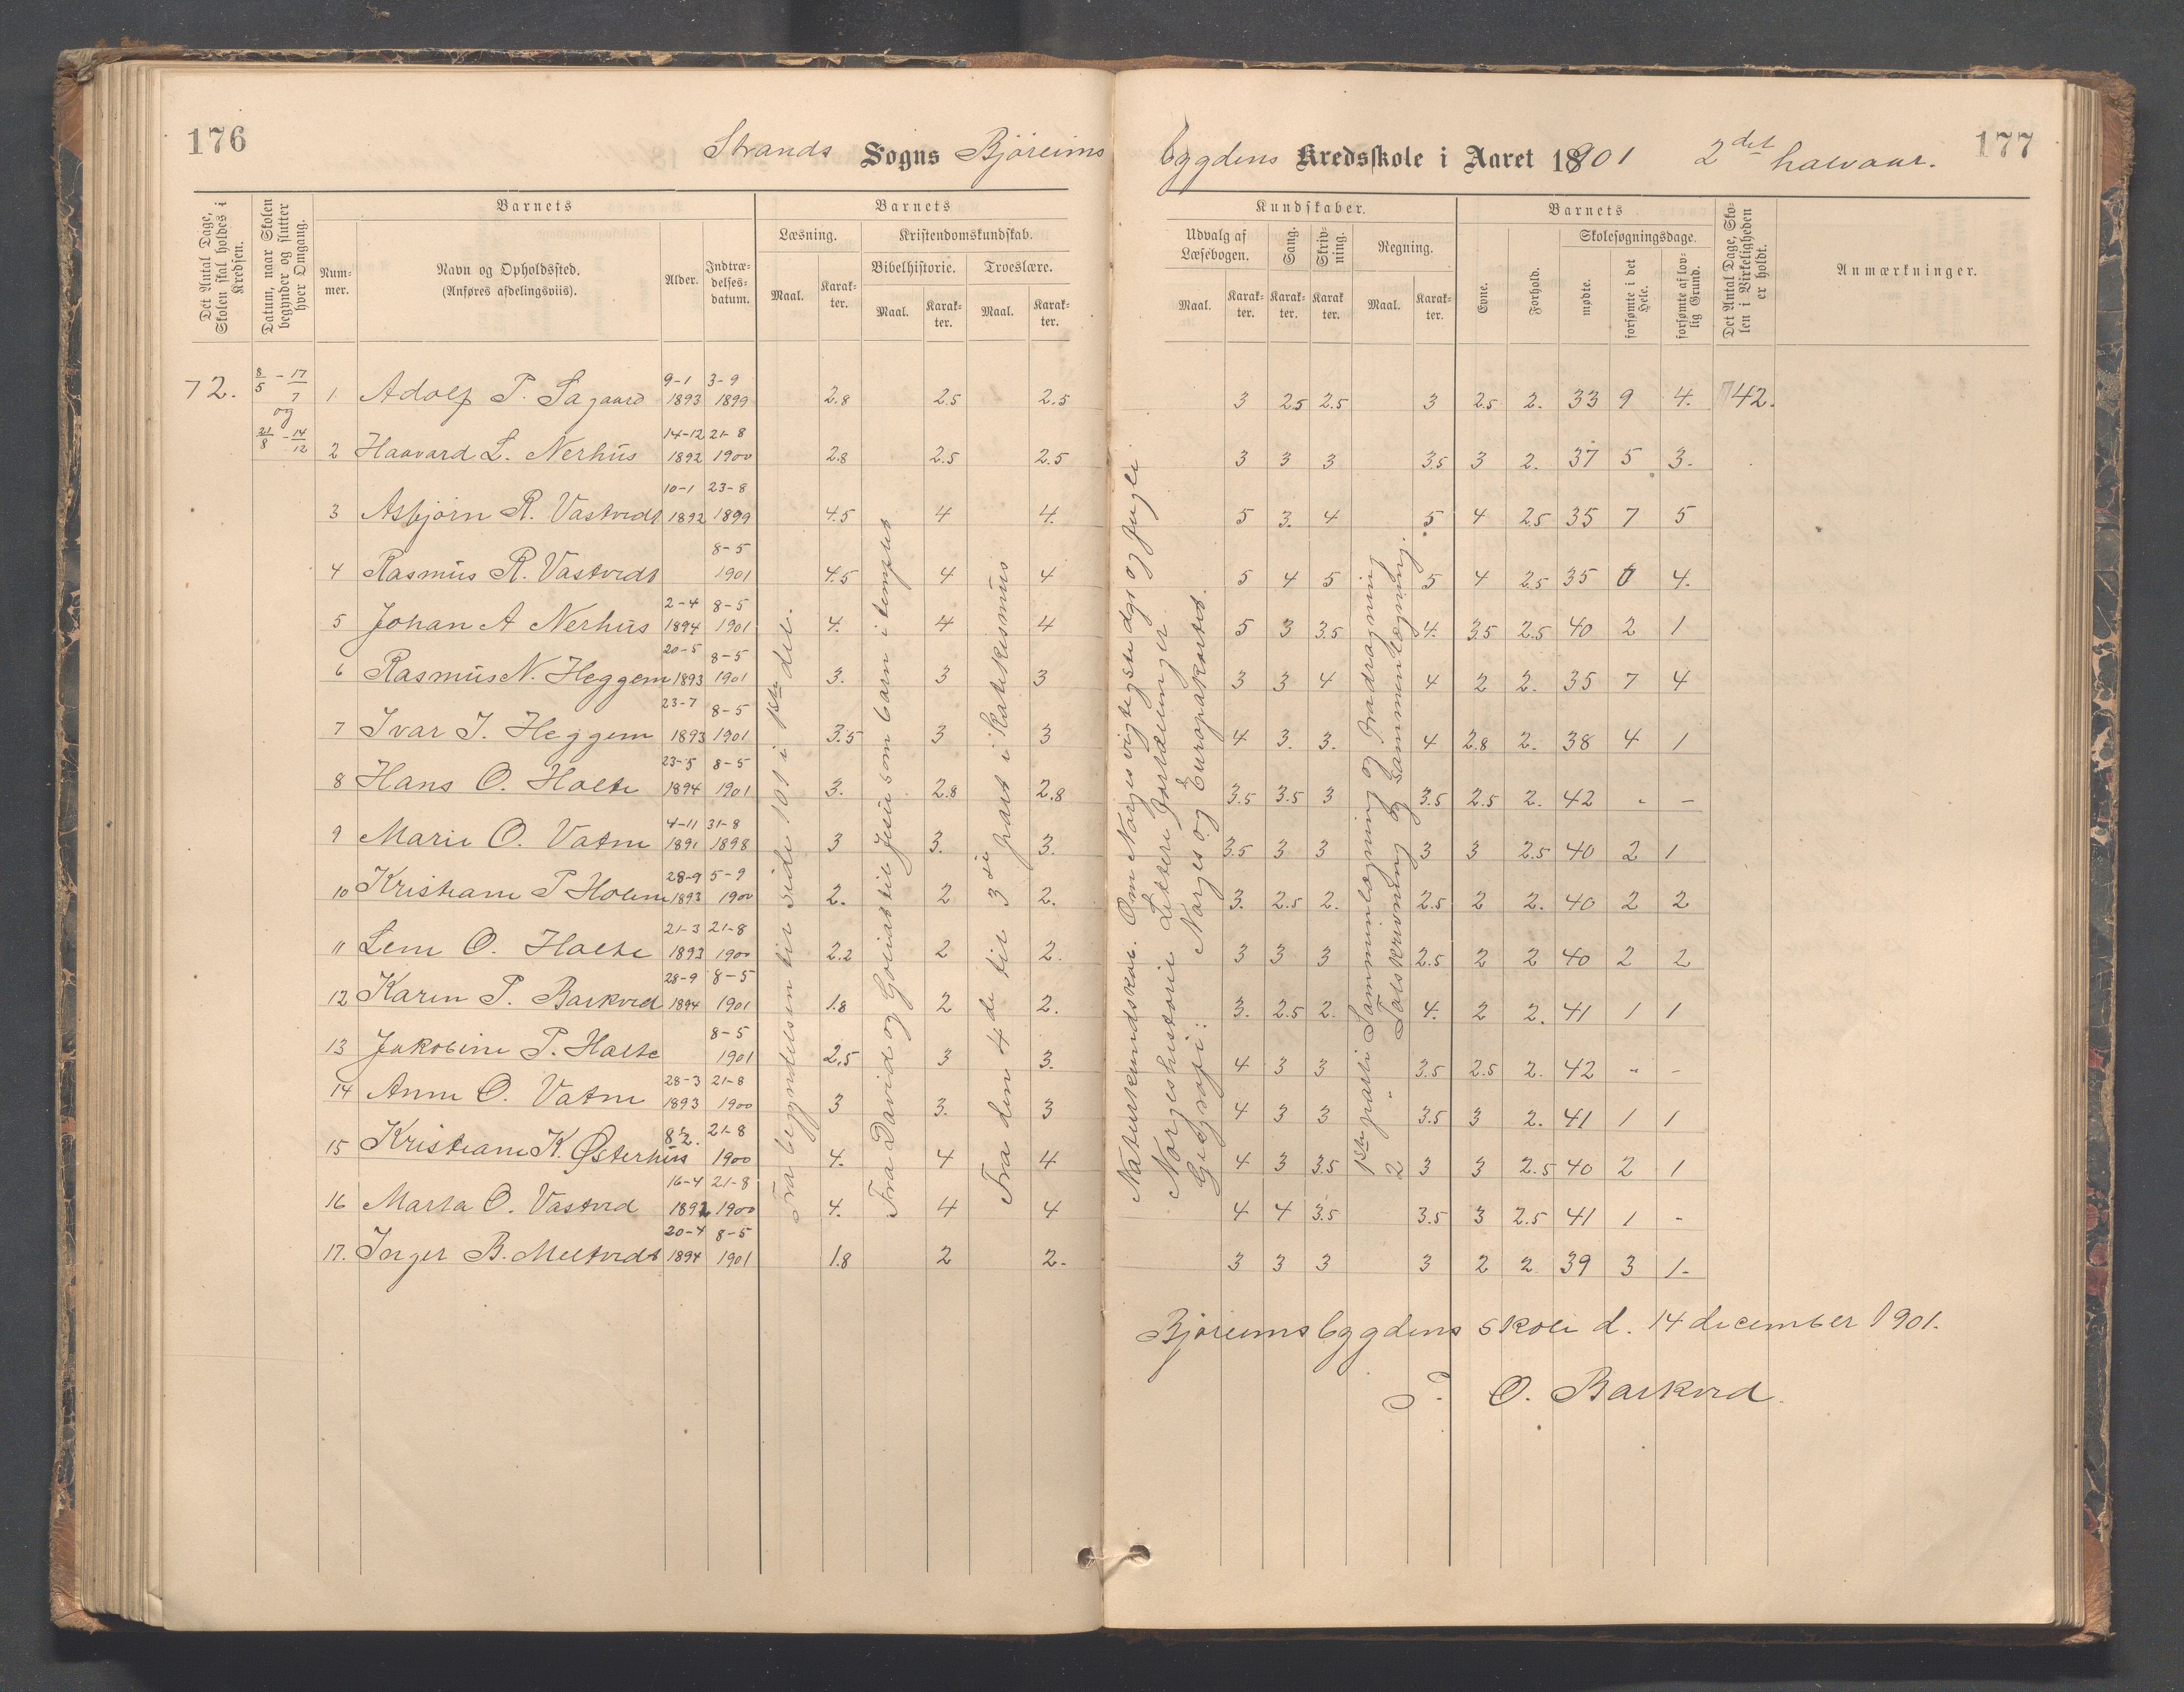 176
Strands Sogns Björeims
bygdens Kredsskole i Aaret 1901 2det halvaar.
177
Det Antal Dage, Skolen skal holdes i Kredsen.
Datum, naar Skolen begynder og slutter hver Omgang.
Barnets
Nummer.
Navn og Opholdssted.
(Anføres afdelingsviis).
Alder.
Indtrædelses-datum.
Barnets
Læsning.
Maal.
Karakter.
Kristendomskundskab.
Bibelhistorie.
Maal.
Karakter.
Troeslære.
Maal.
Karakter.
Kundskaber.
Udvalg af Læsebogen.
Maal.
Karakter.
Sang.
Karakter.
Skrivning.
Karakter.
Regning.
Maal.
Karakter.
Barnets
Evne.
Forhold.
Skolesøgningsdage.
mødte.
forsømte i det Hele.
forsømte af lovlig Grund.
Det Antal Dage, Skolen i Virkeligheden er holdt.
Anmærkninger.
72. 8/5 - 17/7 og 21/8 - 14/12
1 Adolf P. Sagaard 9-1 1893 3-9 1899 2.8 2.5 2.5 3 2.5 2.5 3 2.5 2. 33 9 4. 42.
2 Haavard L. Nerhus 14-12 1892 21-8 1900 2.8 2.5 2.5 3 3 3 3.5 3 2. 37 5 3.
3 Asbjørn R. Vastvedt 10-1 1892 23-8 1899 4.5 4 4. 5 3. 4 5 4 2.5 35 7 5
4 Rasmus R. Vastvedt 8-5 1901 4.5 4 4 5 4 5 5 4 2.5 35 4.
5 Johan A Nerhus 2-4 1894 8-5 1901 4. 4 4 5 3 3.5 4. 3.5 2.5 40 2 1
6 Rasmus N. Heggem 20-5 1893 8-5 1901 3. 3 3 3 3 4 4 2 2. 35 7 4
7 Ivar I. Heggem 23-7 1893 8-5 1901 3.5 3 3 4 3. 3. 4 2.8 2. 38 4 1
8 Hans O. Holte 23-5 1894 8-5 1901 3. 2.8 2.8 3.5 3.5 3 3.5 2.5 2. 42 - -
9 Marie O. Vatne 4-11 1891 31-8 1898 3 3. 3. 3.5 3 3 3 3 2.5 40 2 1
10 Kristiane P Holme 28-9 1893 5-9 1900 2. 2 2. 3. 2.5 2. 2.5 2 2. 40 2 2
11 Lene O. Holte 21-3 1893 21-8 1900 2.2 2 2. 3 3 3 2.5 2 2 40 2 2
12 Karen P. Barkved 28-9 1894 8-5 1901 1.8 2 2. 3. 2.5 2. 4. 2 2. 41 1 1
13 Jakobine P. Holte 8-5 1901 2.5 3 3. 4 3 3 3.5 2.5 2. 42 " -
14 Anne O. Vatne 28-3 1893 21-8 1900 3 3. 3 4 3 3 3.5 3 2. 41 1 1
15 Kristiane K. Østerhus 21-8 1900 4. 4 4 4 3 3.5 3 3 2.5 40 2 1
16 Marta O. Vastved 16-4 1892 21-8 1900 4. 4 4 4 4 3.5 3.5 3 2.5 41 1 -
17. Inger B. Meltvedt 20-4 1894 8-5 1901 1.8 2 2. 3 3 3 3 2 2 39 3 1.
Fra begyndelsen til side 101 i 1ste del.
Fra David og Goliat til Jesus som barn i templet
Fra den 4de til 3die part i Katekismus
Naturkundskab. Om Norges vigtigste dyr og fugle
Norgeshistorie Lettere fortællinger
Geografi: Norges og Europakartet.
1ste parti Sammenlægning og Fradragning
2 " Talskrivning og Sammenlægning.
Björeimsbygdens skole d. 14 december 1901.
T. O. Barkved.